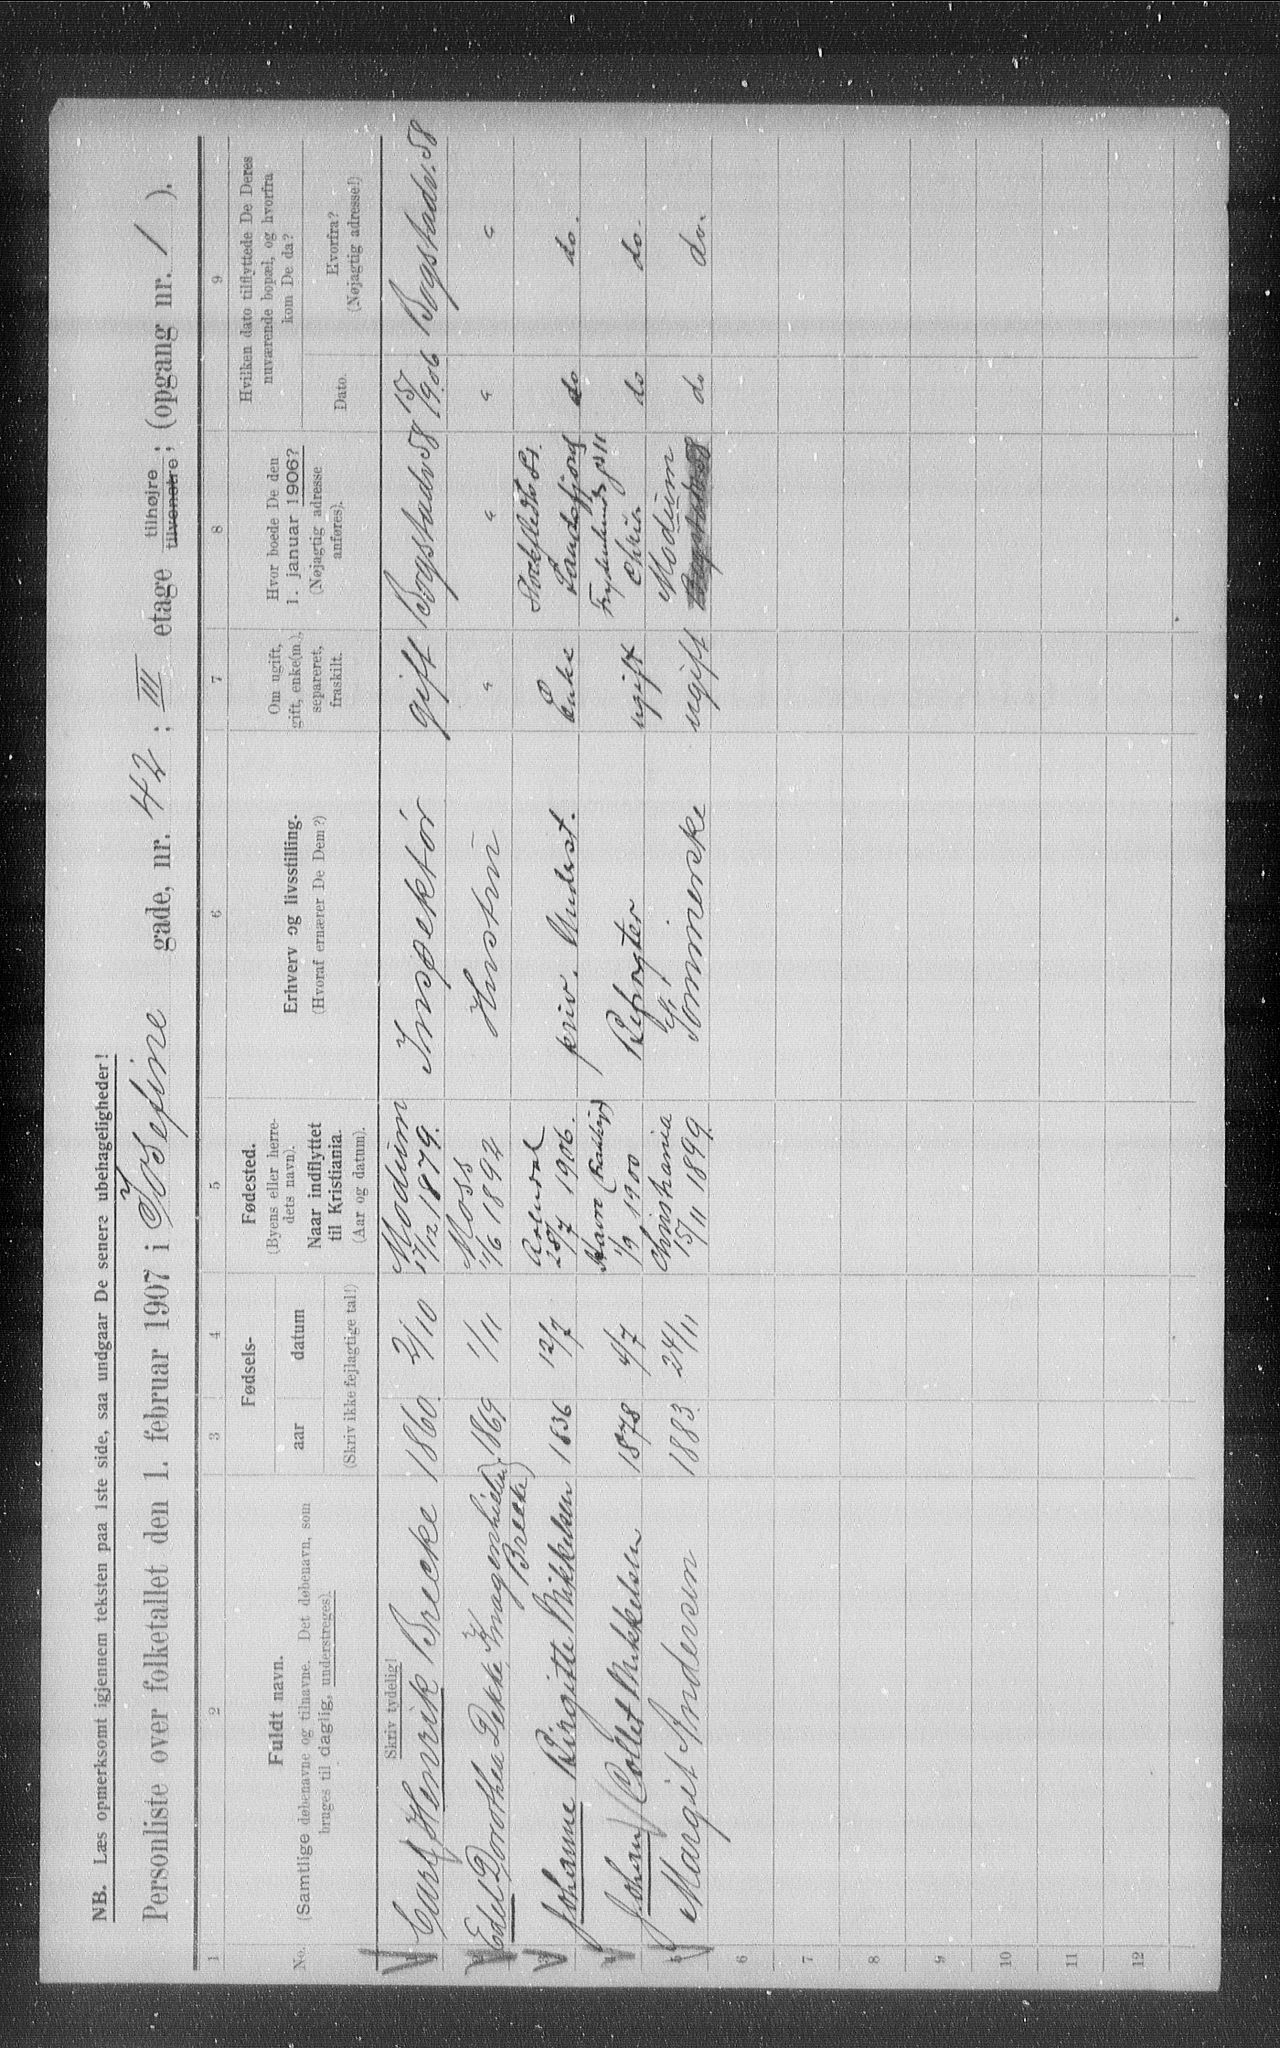 NB. Læs opmerksomt igjennem teksten paa 1ste side, saa undgaar De senere ubehageligheder!
Personliste over folketallet den 1. februar 1907 i Josefine gade, nr. 42 ; III etage tilhøjre tilvenstre ; (opgang nr. 1 ).
1 2 3 4 5 6 7 8 9
No.
Fuldt navn.
(Samtlige døbenavne og tilnavne. Det døbenavn, som
bruges til daglig, understreges).
Skriv tydelig!
Fødsels-
aar datum
(Skriv ikke fejlagtige tal!)
Fødested.
(Byens eller herre-
dets navn).
Naar indflyttet
til Kristiania.
(Aar og datum).
Erhverv og livsstilling.
(Hvoraf ernærer De Dem?)
Om ugift,
gift, enke(m.),
separeret,
fraskilt.
Hvor boede De den
1. januar 1906?
(Nøjagtig adresse
anføres).
Hvilken dato tilflyttede De Deres
nuværende bopæl, og hvorfra
kom De da?
Dato.
Hvorfra?
(Nøjagtig adresse!)
1 Carl Henrik Brecke 1860 2/10 Modum 17/12 1879. Inspektør gift Bogstadv. 58 1906 Bogstadv. 58
2 Edel Dorothea Dekke Knagenhielm Brecke 1869 1/11 Moss 1/6 1892 Hustru " " " "
3 Johanne Birgitte Mikkelsen 1836 12/7 Arendal 28/7 1906. priv. Underst. Enke Sandefjord do do.
4 Johan Collet Mikkelsen 1878 4/7 1/9 1900 ugift Chria do do.
5 Margit Andersen 1883 24/11 Christiania 15/11 1899 ugift Modum do do.
6
7
8
9
10
11
12